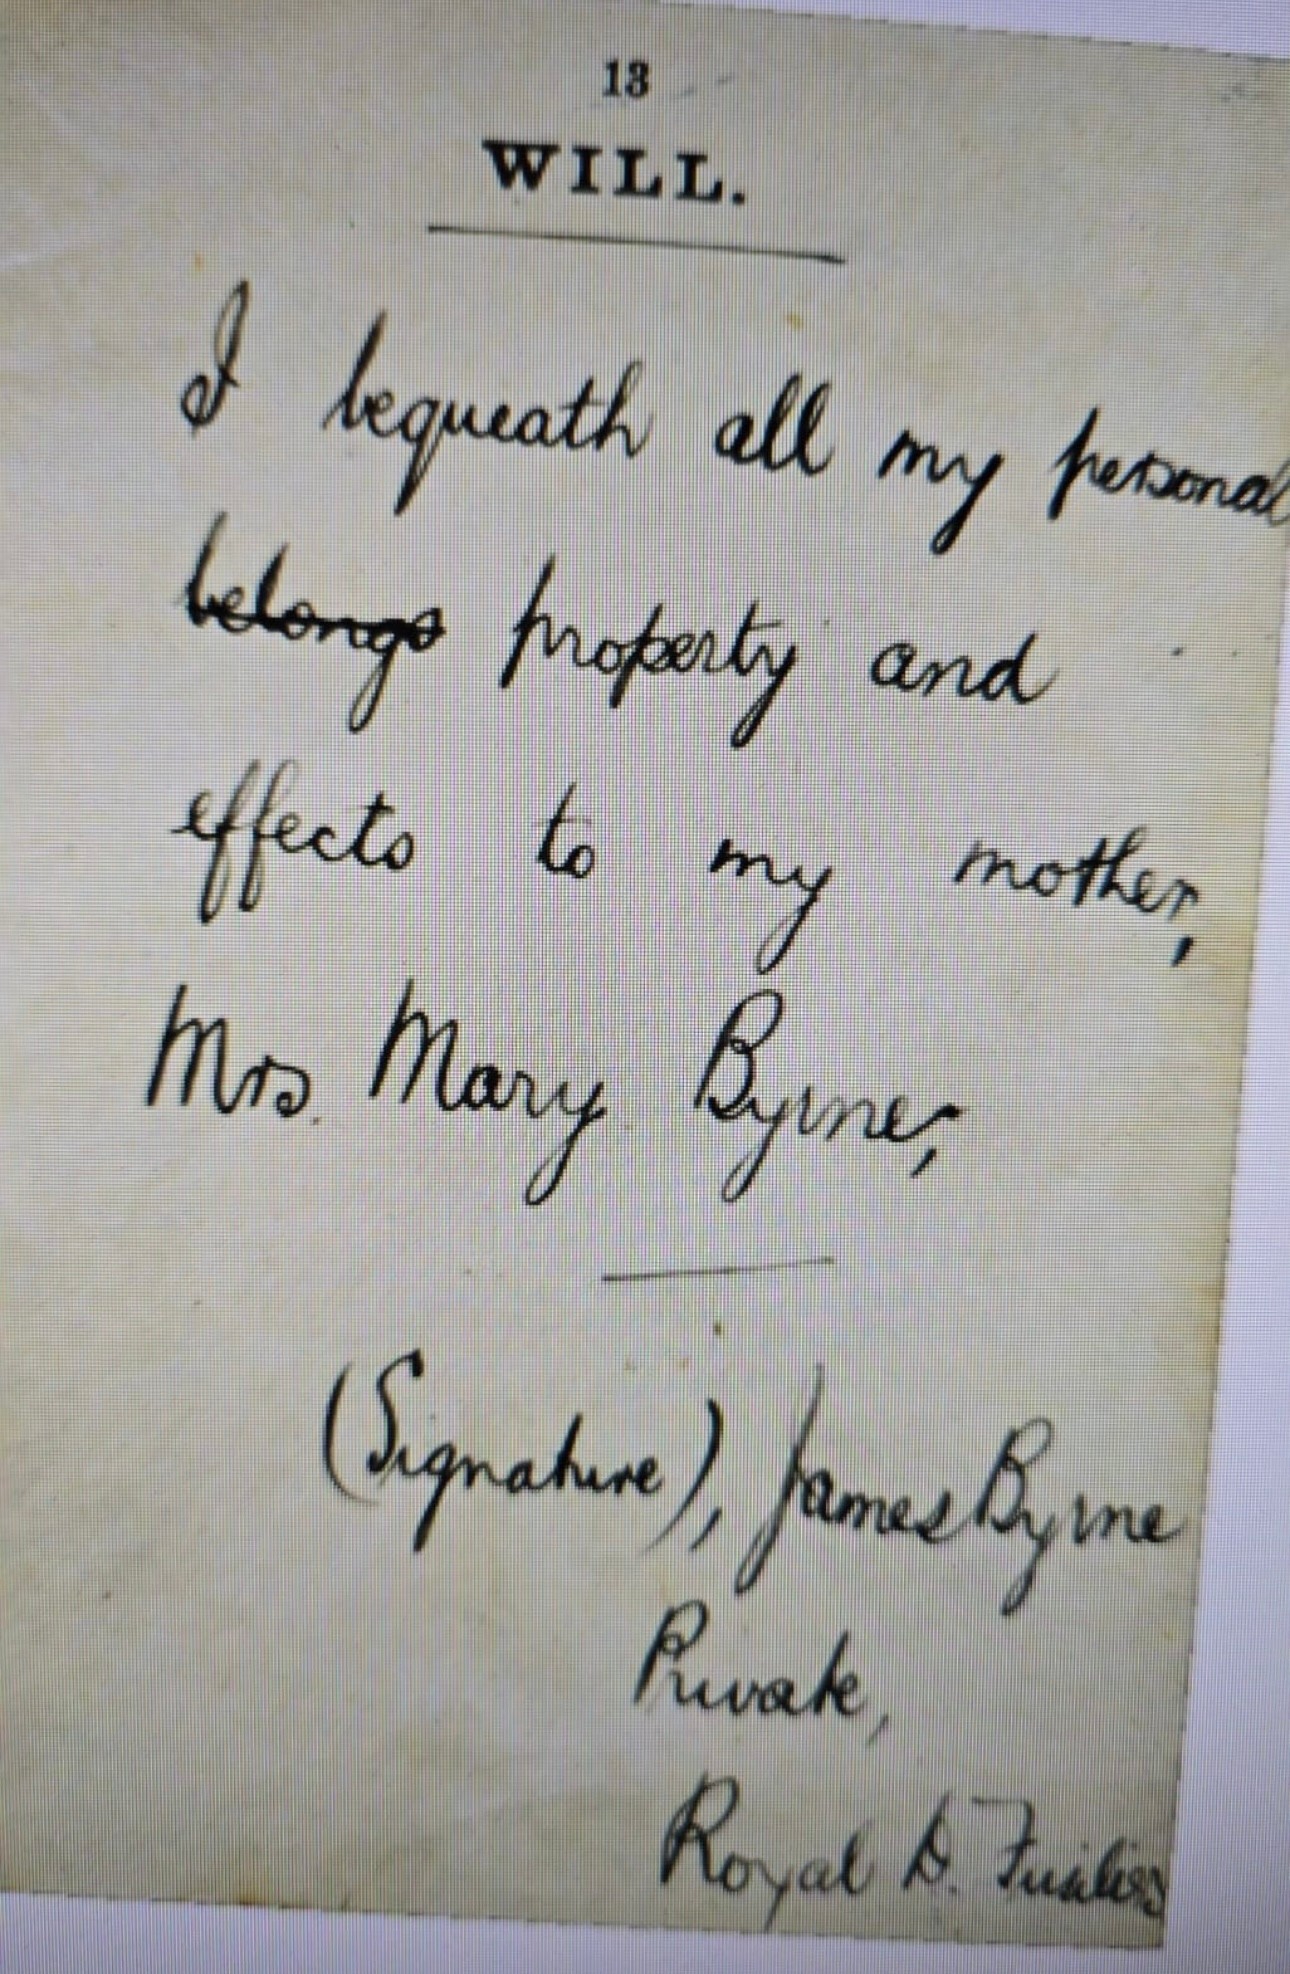 13
WILL.
I bequeath all my personal
belongs property and
effects to my mother,
Mrs. Mary Byrne,
(Signature), James Byrne
Private,
Royal D. Fusiliers